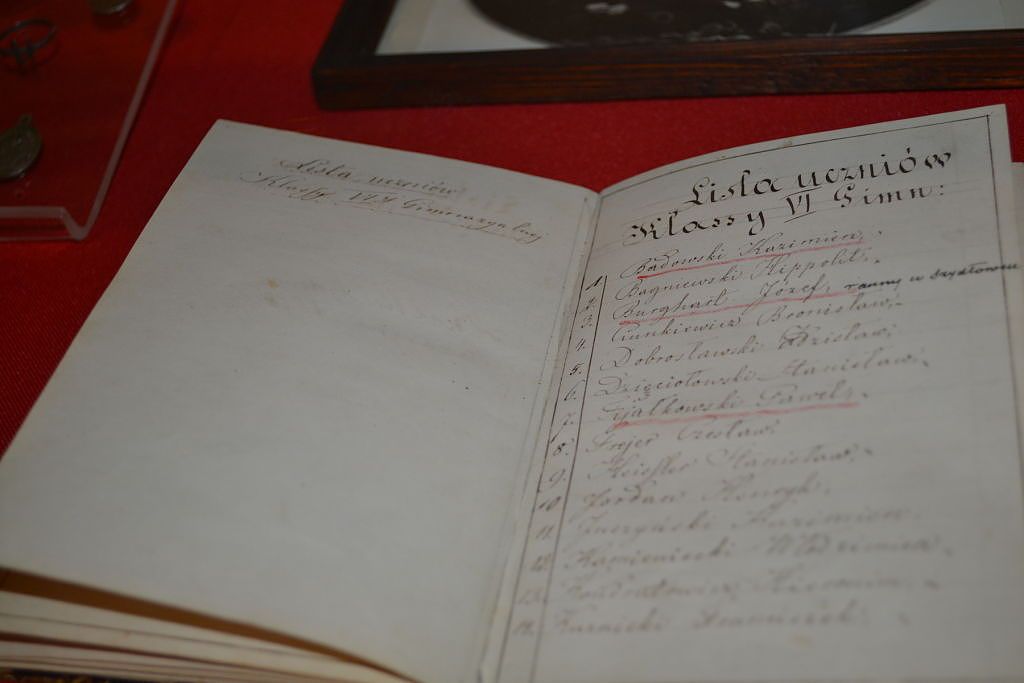 Lista uczniów
Klassy VI Gimnazyalnej
Lista uczniów
Klassy VI Gimn:
1. Badowski Kazimierz
2. Bagniewski Hippolit.
3. Burghart Józef, ranny w Szydłowcu
4. Ciunkiewicz Bronisław
5. Dobrosławski Zdzisław
6. Dzięciołowski Stanisław
7. Fijałkowski Paweł
8. Frejer Czesław
9. Heisler Stanisław
10. Jordan Henryk.
11. Juczyński Kazimierz
12. Kamieniecki Włodzimierz
13. Kondratowicz Hieronim
14. Kurnicki Franciszek